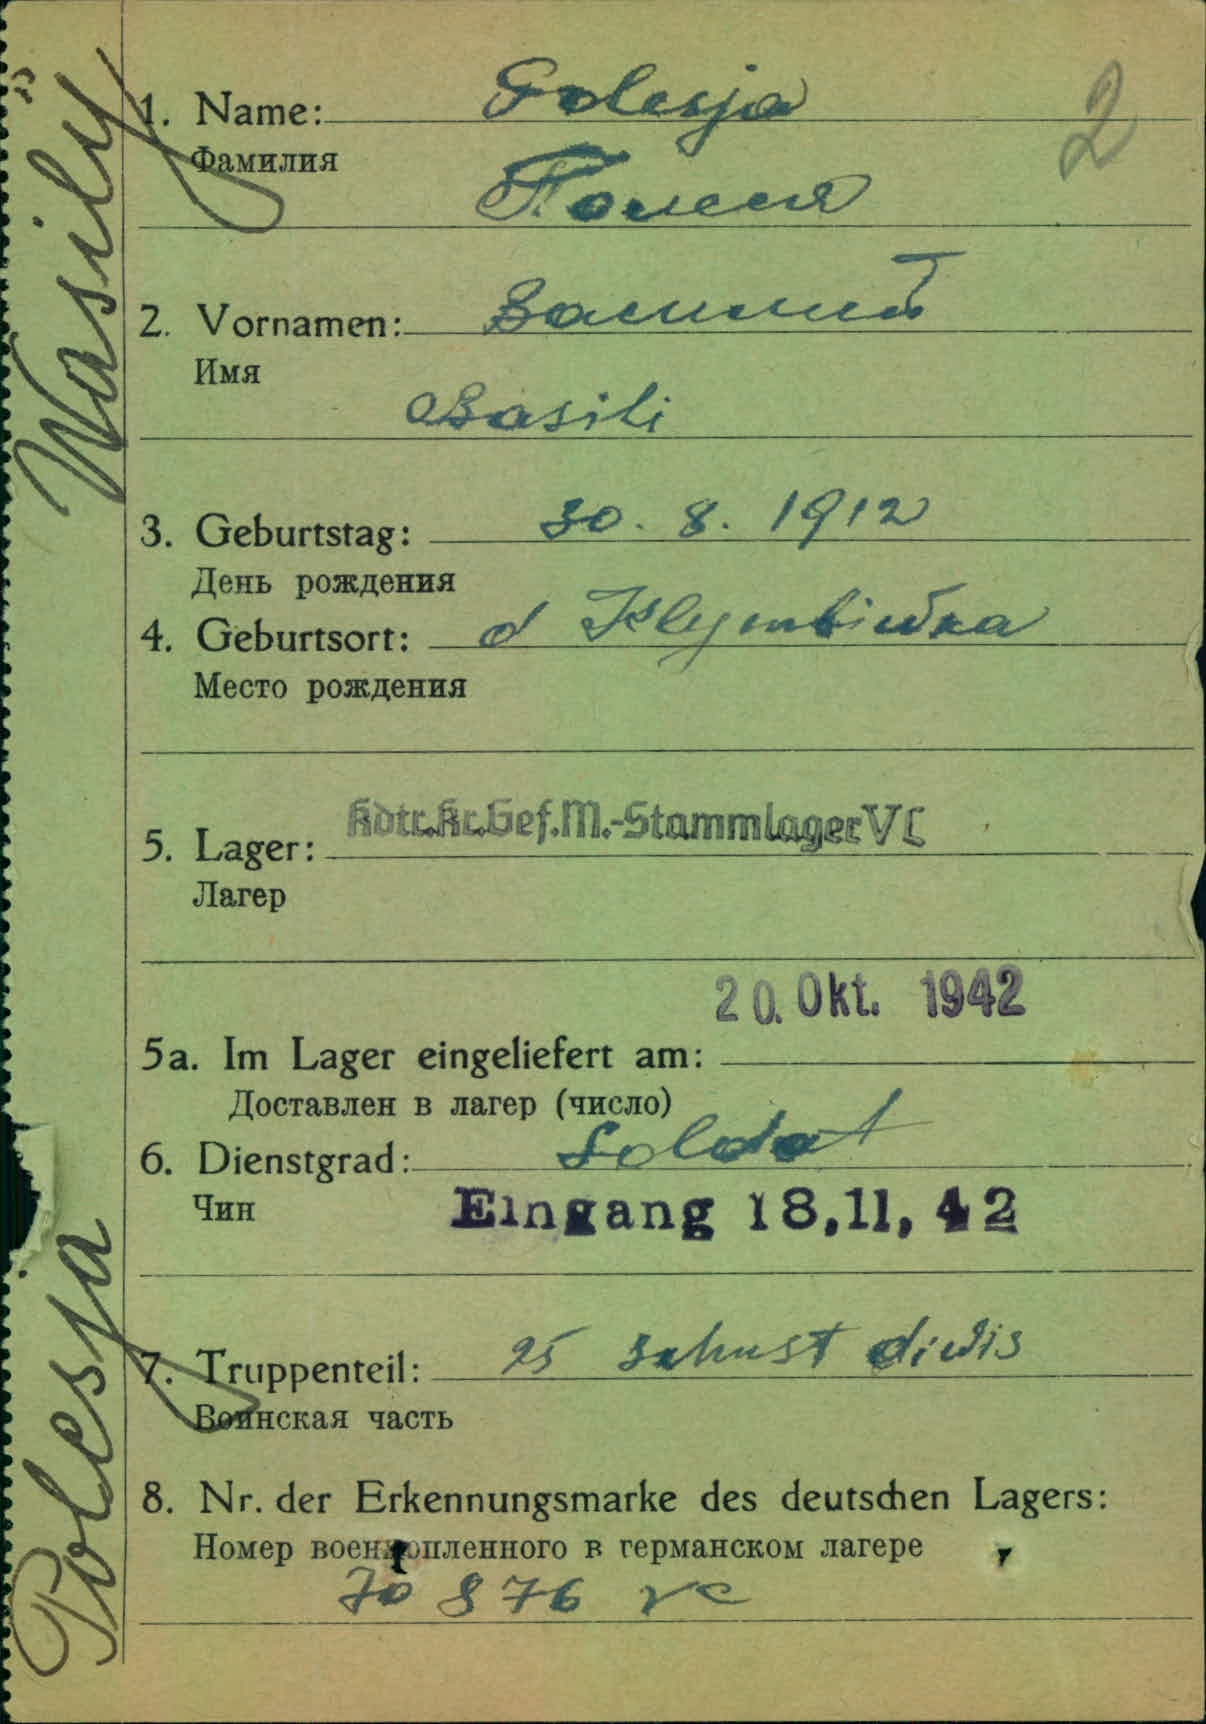 Wasilij
Polesja
2
1. Name: Polesja
Фамилия
Полеся
2. Vornamen: Василий
Имя
Basili
3. Geburtstag: 30. 8. 1912
День рождения
4. Geburtsort: d
Место рождения
5. Lager: Kdtr.Kr.Gef.M.-Stammlager VC
Лагер
20. Okt. 1942
5a. Im Lager eingeliefert am:
Доставлен в лагер (число)
6. Dienstgrad: Soldat
Чин
Eingang 18.11.42
7. Truppenteil: 25 diwis
Воинская часть
8. Nr. der Erkennungsmarke des deutschen Lagers:
Номер военнопленного в германском лагере
70 876 VC